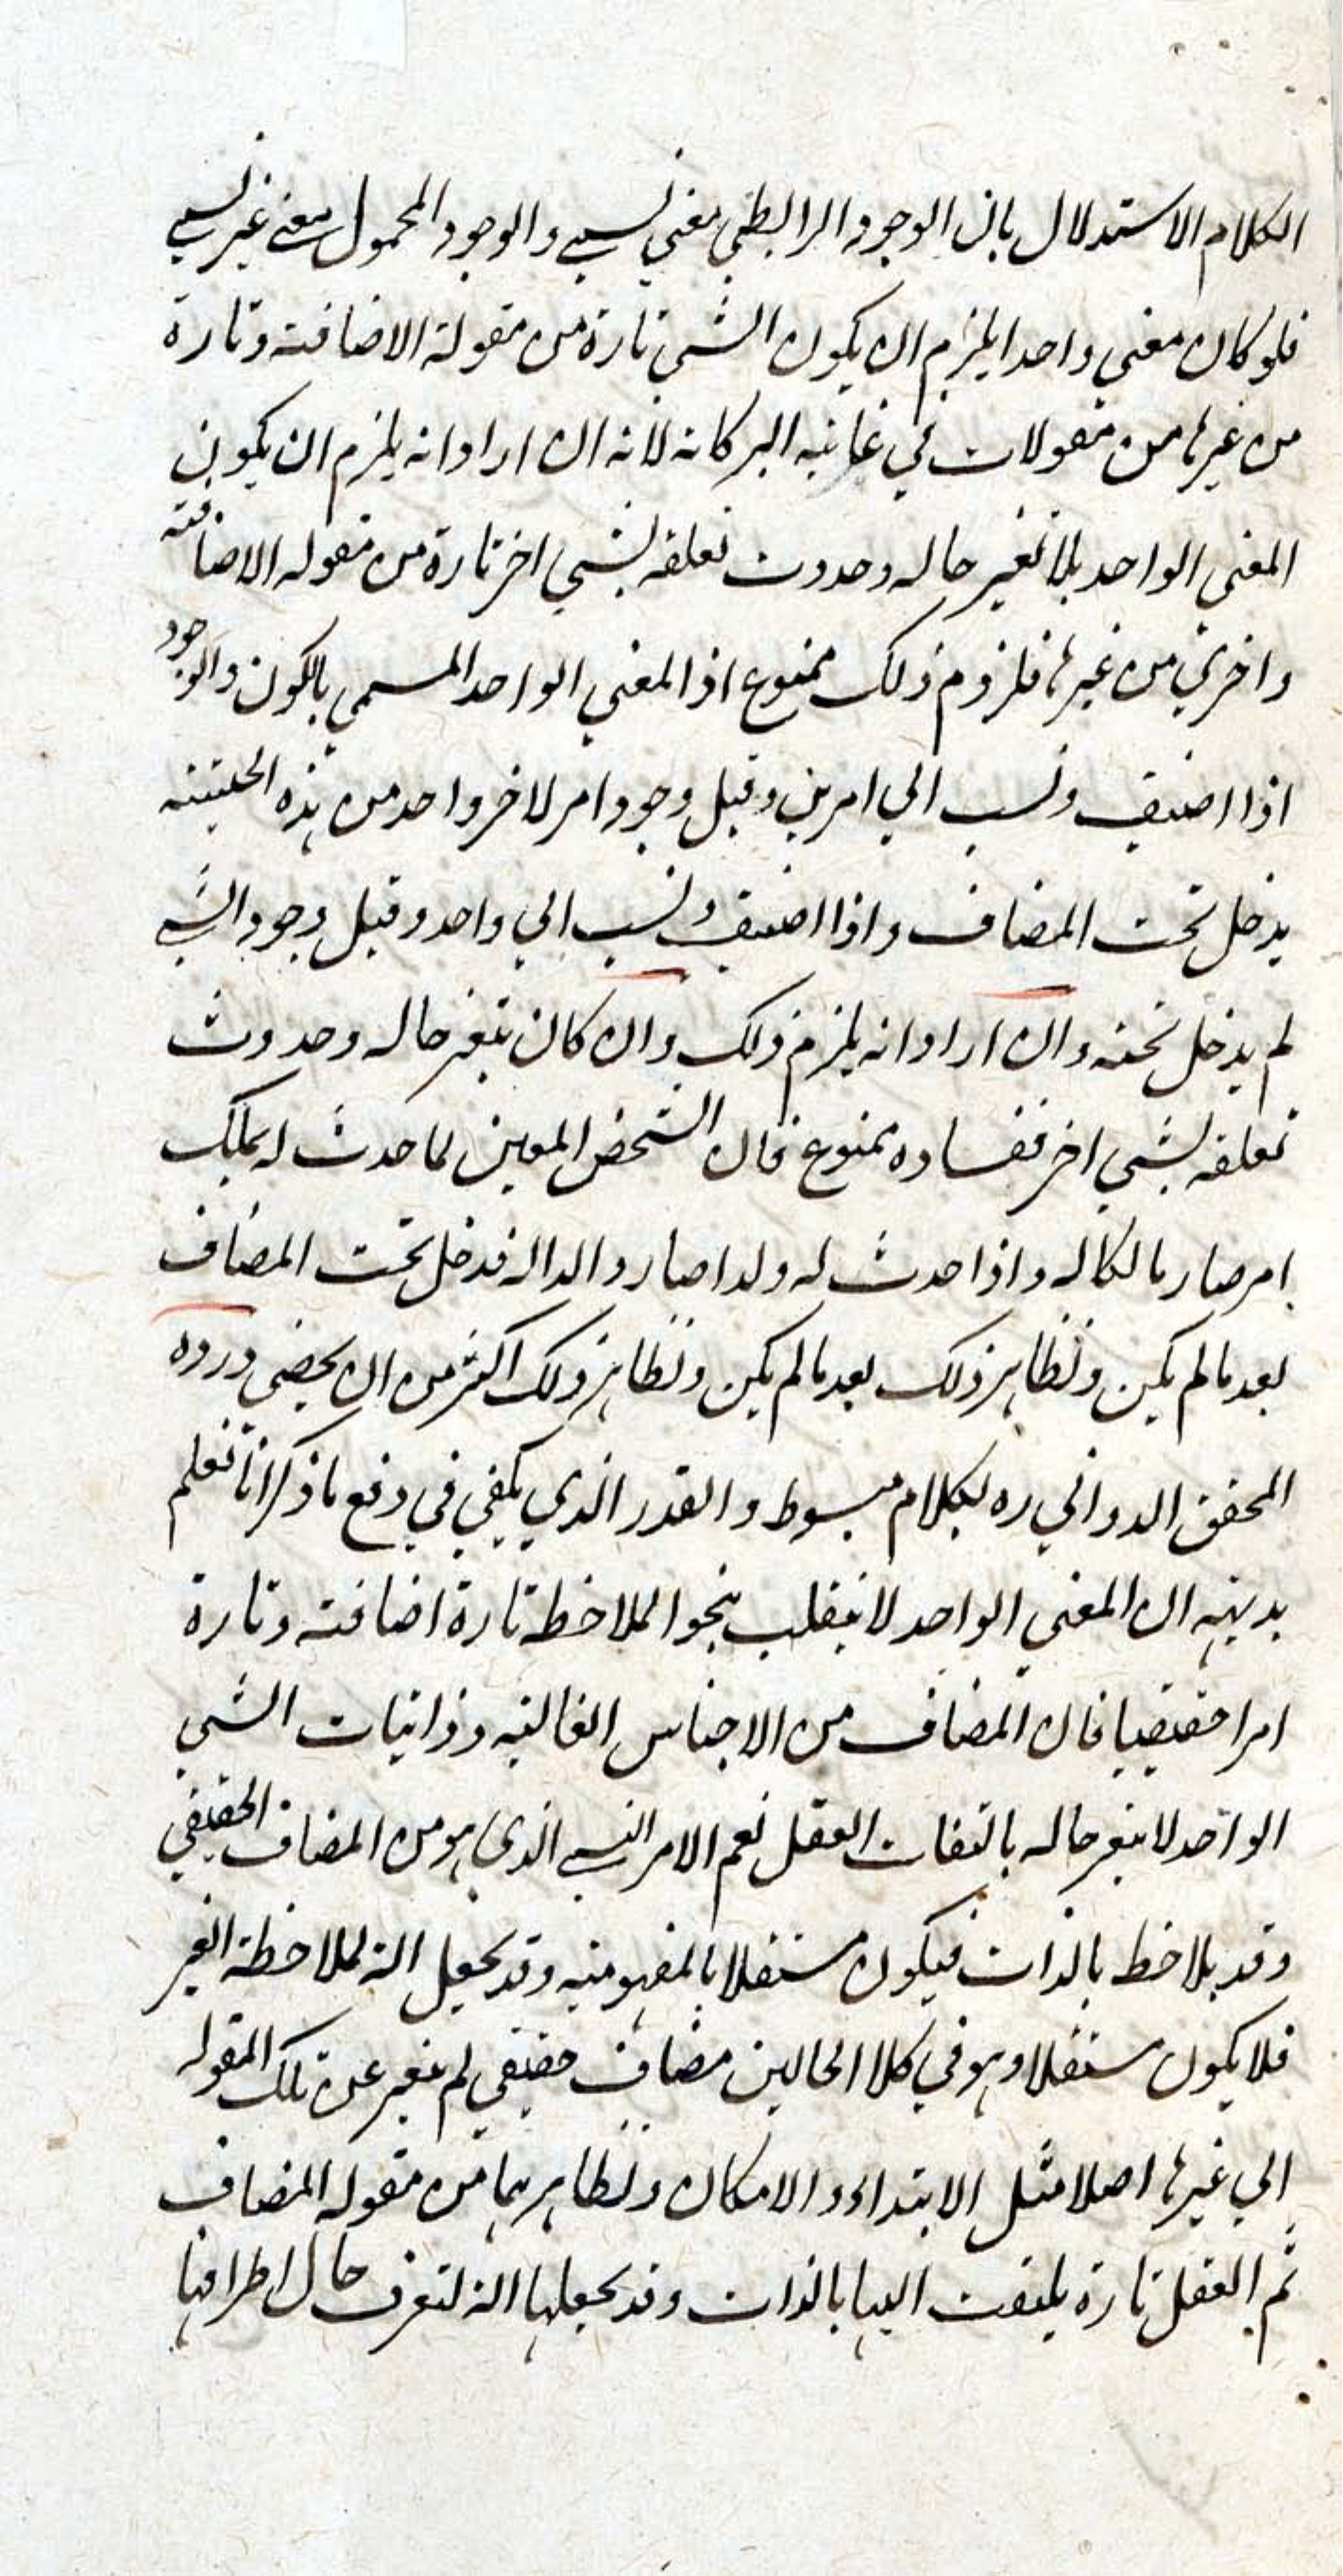 الكلام الاستدلال بان الوجود الرابطي معني نسبي والوجود المحمول معنى غير نسبي
فلو كان معني واحدا يلزم ان يكون الشي تارة من مقولة الاضافته وتارة
من غيرها من مقولات في غايته البركانه لانه ان اراد انه يلزم ان يكون
المعني الواحد بلا تغير حاله وحدوث تعلقه بشي اخر تارة من مقوله الاضافته
واخري من غيرها فلزوم ذلك ممنوع اذ المعني الواحد المسمى بالكون والوجود
اذا اضيف ونسب الي امرين وقيل وجود امر لاخر واحد من هذه الحيثيته
يدخل تحت المضاف واذا اضيف ونسب الي واحد وقيل وجود الشي
لم يدخل تحته وان اراد انه يلزم ذلك وان كان بتغير حاله وحدوث
تعلقه بشي اخر ففساده ممنوع فان الشخص المعين لما حدث له بملك
امر صار مالكا له واذا حدث له ولد اصار والدا له فدخل تحت المضاف
بعد ما لم يكن ونظاير ذلك بعد ما لم يكن ونظاير ذلك اكثر من ان يحصى ورده
المحقق الدواني ره بكلام مبسوط والقدر الذي يكفي في دفع ما ذكر انا نعلم
بديهته ان المعني الواحد لا ينقلب بنحو الملاحظه تارة اضافته وتارة
امرا حقيقيا فان المضاف من الاجناس العاليه وذاتيات الشي
الواحد لا يتغير حاله بالتفات العقل نعم الامر النسبي الذي هو من المضاف الحقيقي
وقد يلاحظ بالذات فيكون مستقلا بالمفهوميته وقد يجعل الة لملاحظة الغير
فلا يكون مستقلا وهو في كلا الحالين مضاف حقيقي لم يتغير عن تلك المقوله
الي غيرها اصلا مثل الابتداء والامكان ونظايرهما من مقوله المضاف
ثم العقل تارة يلتفت اليها بالذات وقد يجعلها الة لتعرف حال اطرافها